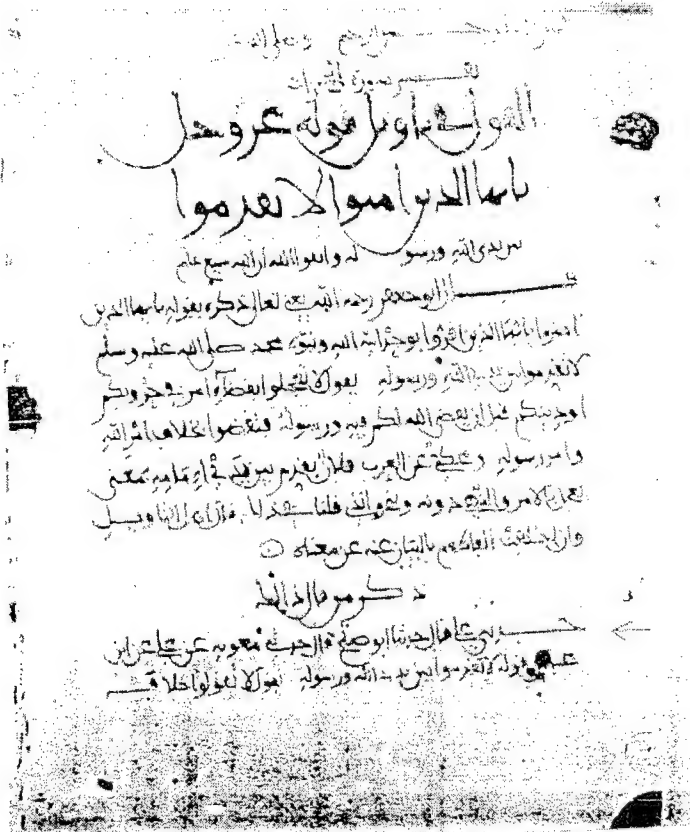 بسم الله الرحمن الرحيم وصلى الله
تفسير سورة الحجرات
القول في تاويل قوله عز وجل
يايها الذين امنوا لا تقدموا
بين يدي الله ورسوله واتقوا الله ان الله سميع عليم
قال ابو جعفر رحمه الله يعني تعالى ذكره بقوله يايها الذين
امنوا يا ايها الذين اقروا بوحدانية الله ونبوة محمد صلى الله عليه وسلم
لا تقدموا بين يدي الله ورسوله يقول لا تعجلوا بقضاء امر في حروبكم
او دينكم قبل ان يقضي الله لكم فيه ورسوله فتقضوا بخلاف امر الله
وامر رسوله ومحكي عن العرب فلان يقدم بين يدي امامه بمعنى
يعجل بالامر والنهي دونه وبنحو الذي قلنا في ذلك قال اهل التاويل
وان اختلفت الفاظهم بالبيان عنه عن معناه
ذكر من قال ذلك
حدثني علي قال حدثنا ابو صالح قال حدثني معوية عن علي عن ابن
عباس قوله لا تقدموا بين يدي الله ورسوله يقول لا تقولوا خلاف